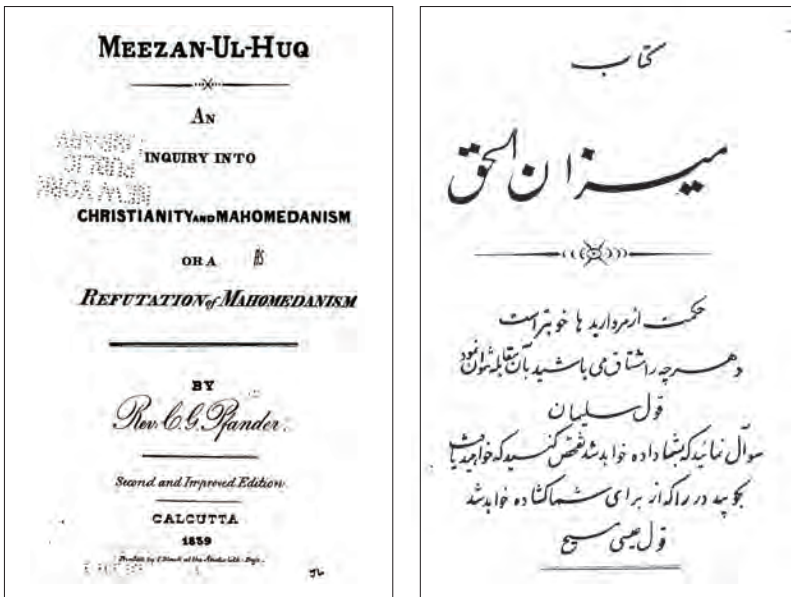 MEEZAN-UL-HUQ
AN
INQUIRY INTO
CHRISTIANITY AND MAHOMEDANISM
OR A
REFUTATION of MAHOMEDANISM
BY
Rev. C. G. Pfander.
Second and Improved Edition.
CALCUTTA
1839
کتاب
میزان الحق
حکمت از مروارید ها خوبتر است
و هر چه را مشتاق می باشید بآن مقابله نتوان نمود
قول سلیمان
سوآل نمائید که بشما داده خواهد شد تفحص کنید که خواهید یافت
بکوبید در را که از برای شما کشاده خواهد شد
قول عیسی مسیح